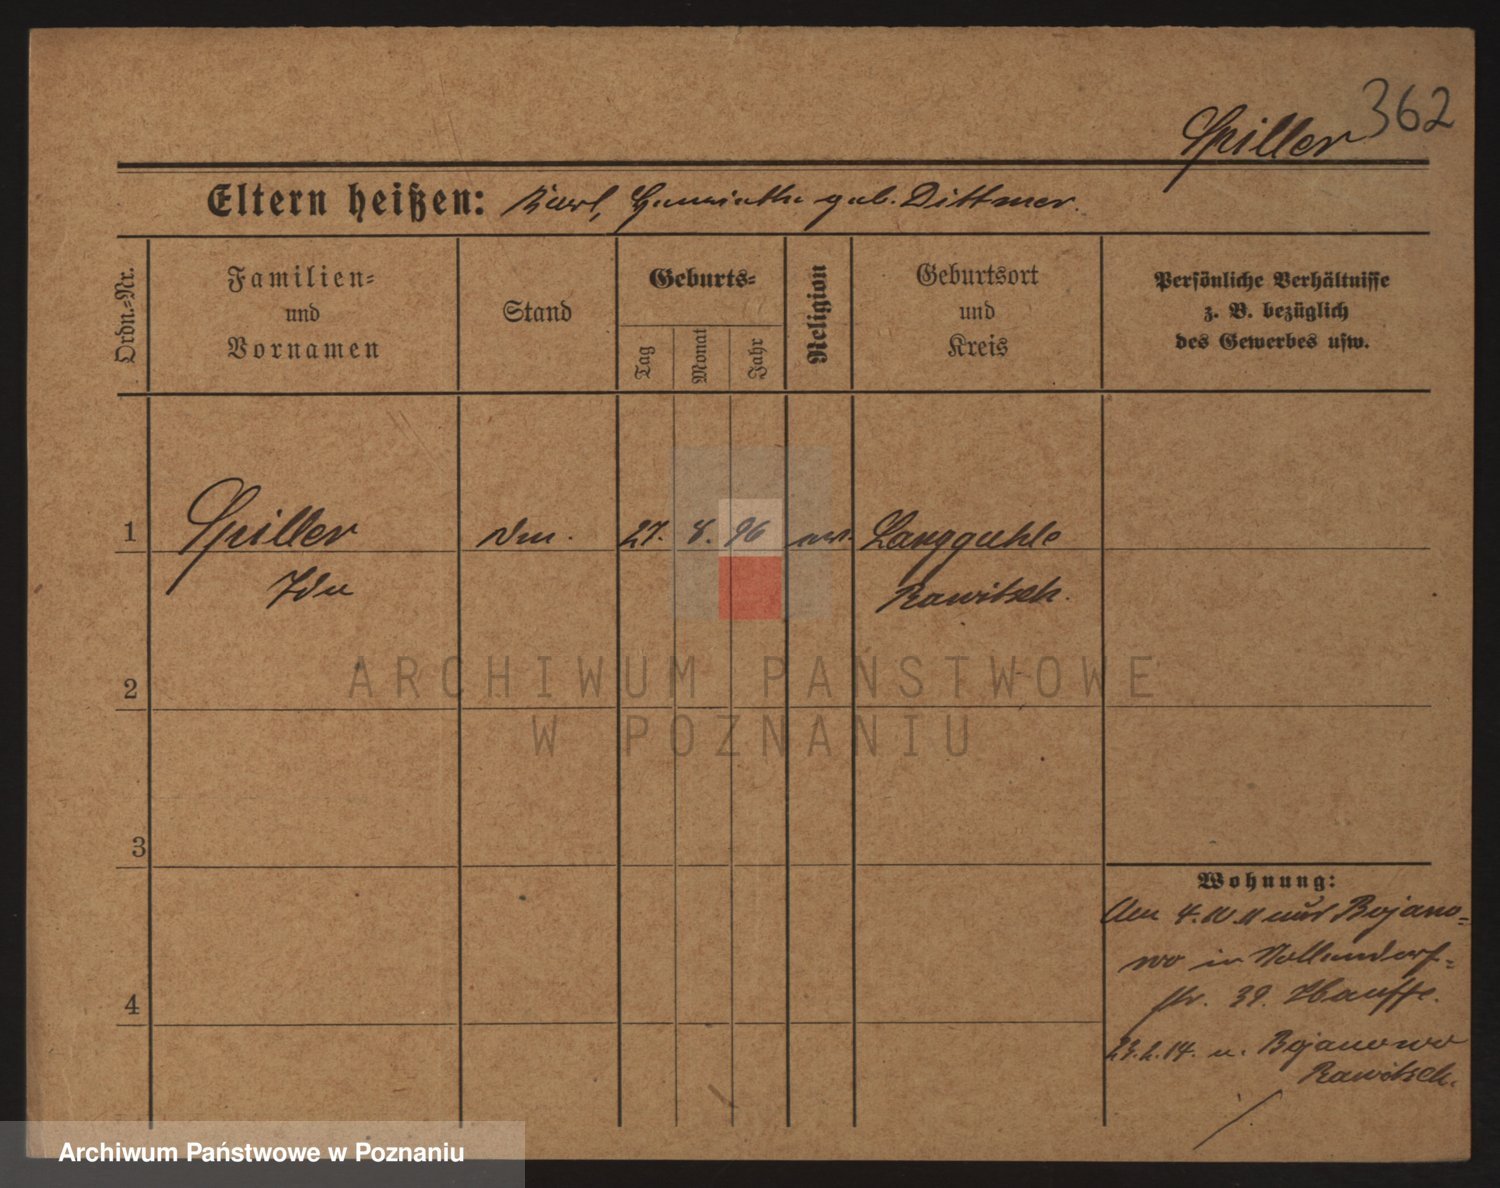 362
Spiller
Eltern heißen: Karl, Henriette geb. Dittmer.
Ordn.=Nr.
Familien=
und
Vornamen
Stand
Geburts=
Tag
Monat
Jahr
Religion
Geburtsort
und
Kreis
Persönliche Verhältnisse
z. B. bezüglich
des Gewerbes usw.
1
Spiller
27. 8. 96
Langguhle
Ida
Rawitsch.
2
3
4
Wohnung:
4. 10. 11 Bojano=
wo in
str. 39. Hauffe.
23.2.14. n. Bojanowo
Rawitsch.
ARCHIWUM PAŃSTWOWE
W POZNANIU
Archiwum Państwowe w Poznaniu